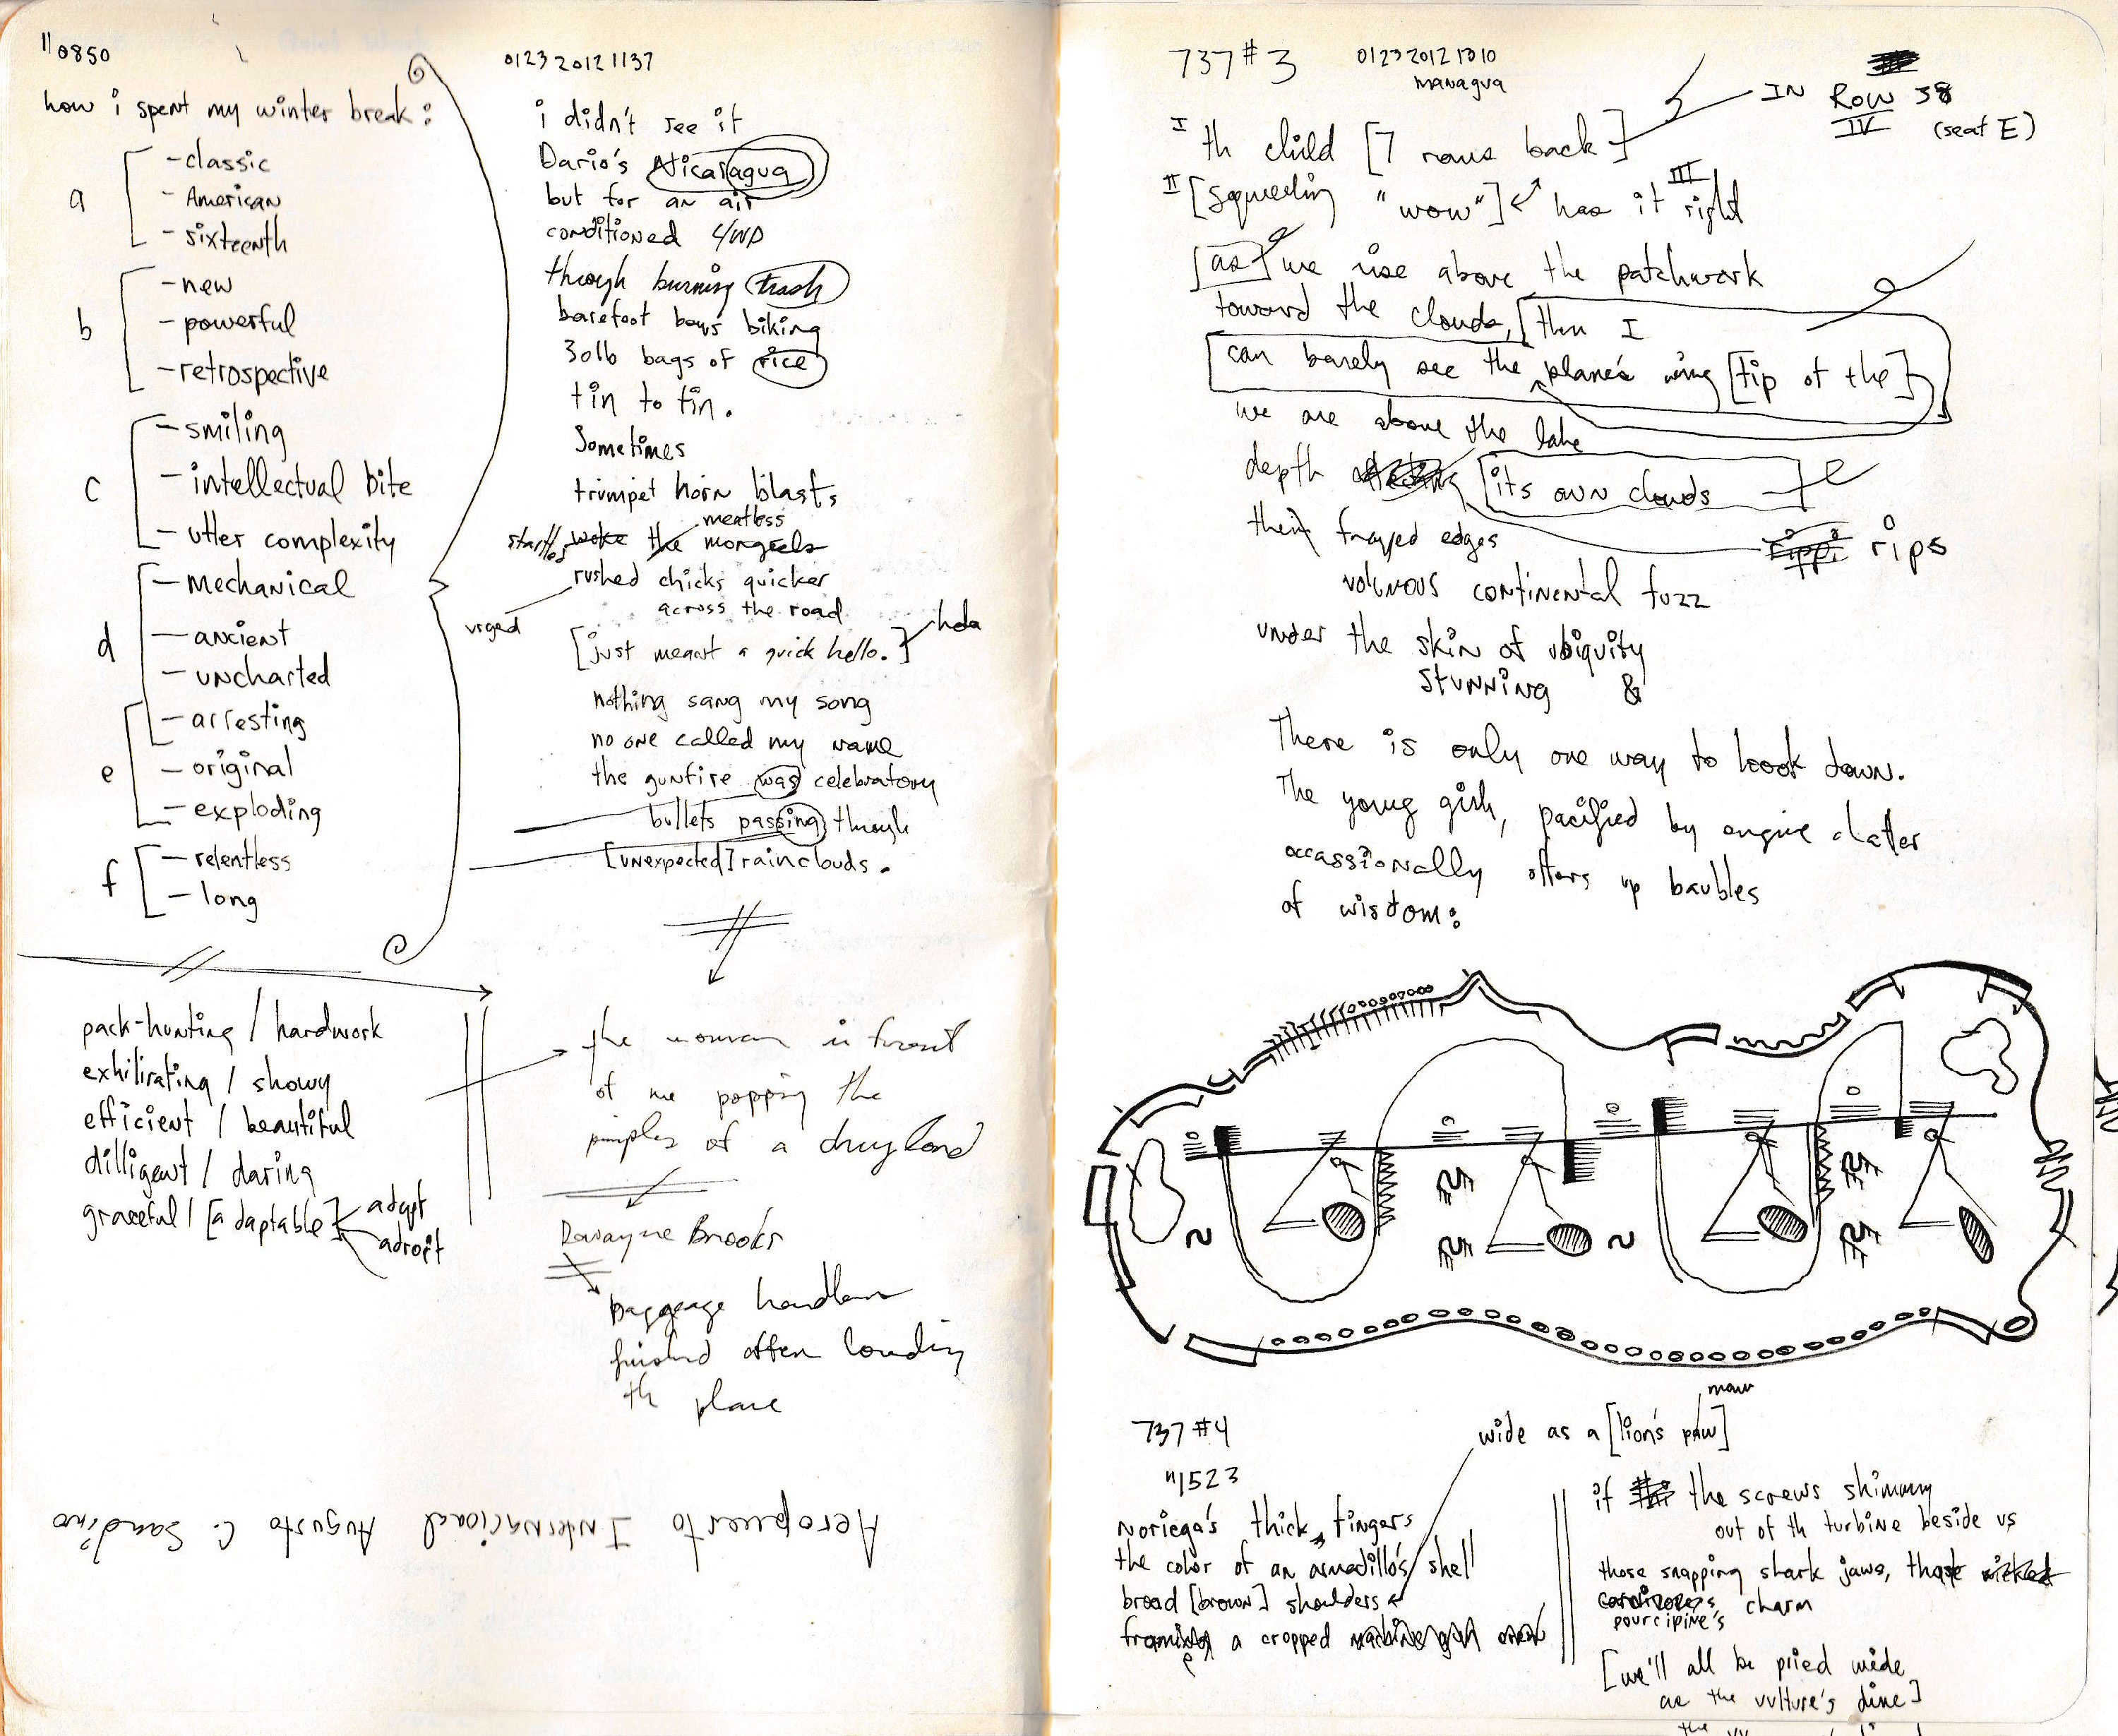 "0850
how i spent my winter break:
a
- classic
- American
- sixteenth
b
- new
- powerful
- retrospective
c
- smiling
- intellectual bite
- utter complexity
d
- mechanical
- ancient
- uncharted
e
- arresting
- original
- exploding
f
- relentless
- long
pack-hunting / hardwork
exhilirating / showy
efficient / beautiful
dilligent / daring
graceful / [adaptable]
adept
adroit
Aeropuerto Internacional Augusto C. Sandino
0123 2012 1137
i didn't see it
Dario's Nicaragua
but for an air
conditioned 4WD
through burning trash
barefoot boys biking
30lb bags of rice
tin to tin.
Sometimes
trumpet horn blasts
meatless
startles woke the mongrels
rushed chicks quicker
across the road
urged
[just meant a quick hello.]
hola
nothing sang my song
no one called my name
the gunfire was celebratory
bullets passing through
[unexpected] rainclouds.
the woman in front
of me popping the
pimples of a drug lord
Dwayne Brooks
baggage handlers
finished often loading
th plane
737 #3
0123 2012 1310
managua
IN Row 38
IV
(seat E)
I th child [7 rows back]
III
II [squealing "wow"] has it right
[as] we rise above the patchwork
toward the clouds, then I
can barely see the plane's wing [tip of the]
we are above the lake
depth [its own clouds]
their frayed edges
rips
voluvous continental fuzz
under the skin of ubiquity
stunning &
There is only one way to look down.
The young girl, pacified by engine clatter
occassionally offers up baubles
of wisdom:
737 #4
"1523
maw
wide as a [lion's paw]
Noriega's thick, fingers
the color of an armadillo's shell
broad [brown] shoulders
framing a cropped machine gun
if the screws shimmy
out of th turbine beside us
those snapping shark jaws, those wicked
pourcipine's charm
[we'll all be pried wide
as the vulture's dine]
the